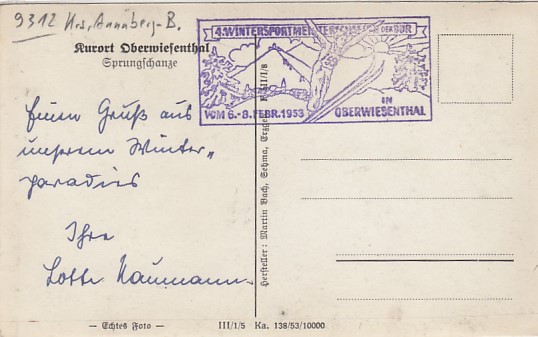 9312 Krs. Annaberg-B.
Kurort Oberwiesenthal
Sprungschanze
4. WINTERSPORTMEISTERSCHAFTEN DER DDR
VOM 6.-8. FEBR. 1953
IN
OBERWIESENTHAL
Einen Gruß aus
unserem Winter„
paradies
Ihre
Lotte Naumann.
Hersteller: Martin Bach, Sehma, Erzgeb.
— Echtes Foto —
III/1/5 Ka. 138/53/10000